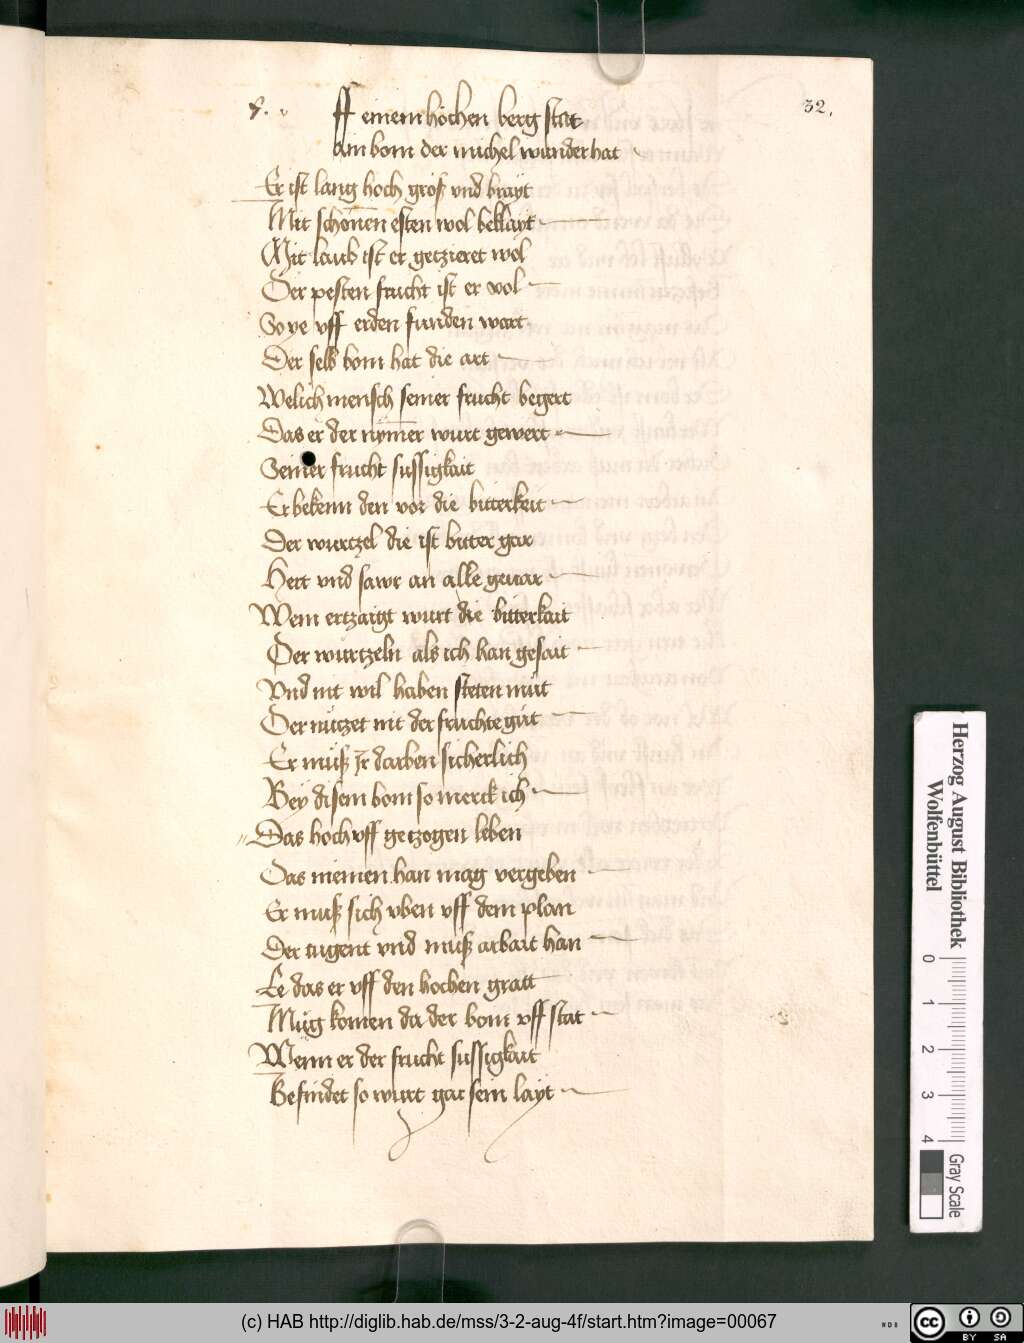 32,
ff einem hochen berg stat
Ain bom der michel wunder hat
Er ist lang hoch groß vnd brayt
Mit schonen esten wol beklayt
Mit laub ist er getzieret wol
Der pesten frucht ist er vol
So ye vff erden funden wart
Der selb bom hat die art
Welich mensch seiner frucht begert
Das er der nymer wurt gewert
Seiner frucht sussigkait
Er bekenn den vor die bitterkeit
Der wurtzel die ist bitter gar
Hert vnd sawr an alle geuar
Wem ertzaigt wurt die bitterkait
Der wurtzeln als ich han gesait
Vnd nit wil haben steten mut
Der nutzet nit der fruchte gut
Er muß Ir darben sicherlich
Bey disem bom so merck ich
Das hoch vff getzogen leben
Das niemen han mag vergeben
Er muß sich vben vff dem plan
Der tugent vnd muß arbait han
Ee das er vff den hochen gratt
Mug komen da der bom vff stat
Wenn er der frucht sussigkait
Befindet so wurt gar sein layt
Herzog August Bibliothek
Wolfenbüttel
0 1 2 3 4
Gray Scale
(c) HAB http://diglib.hab.de/mss/3-2-aug-4f/start.htm?image=00067
WDB
cc BY SA